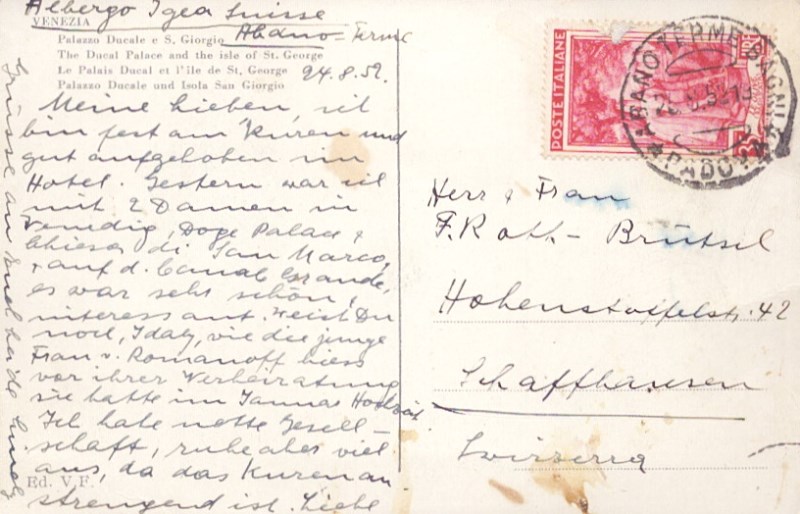 Albergo Igea Suisse
VENEZIA
Abano - Terme
Palazzo Ducale e S. Giorgio
The Ducal Palace and the isle of St. George
Le Palais Ducal et l'île de St. George
Palazzo Ducale und Isola San Giorgio
24.8.52.
Meine Lieben, ich
bin fest am Kuren und
gut aufgehoben im
Hotel. Gestern war ich
mit 2 Damen in
Venedig, Doge Palace &
Chiesa di San Marco,
& auf d. Canal Grande,
es war sehr schön &
interessant. Weisst Du
noch, Idaly, wie die junge
Frau v. Romanoff hiess
vor ihrer Verheiratung
sie hatte im Januar Hochzeit
Ich habe nette Gesell-
schaft, ruhe aber viel
aus, da das Kuren an
strengend ist. Liebe
Grüsse an Euch beide
Ed. V. F.
POSTE ITALIANE
ABANO TERME BAGNI
PADOVA
Herr & Frau
F. Roth - Brütsch
Hohenstoffelstr. 42
Schaffhausen
Svizzera